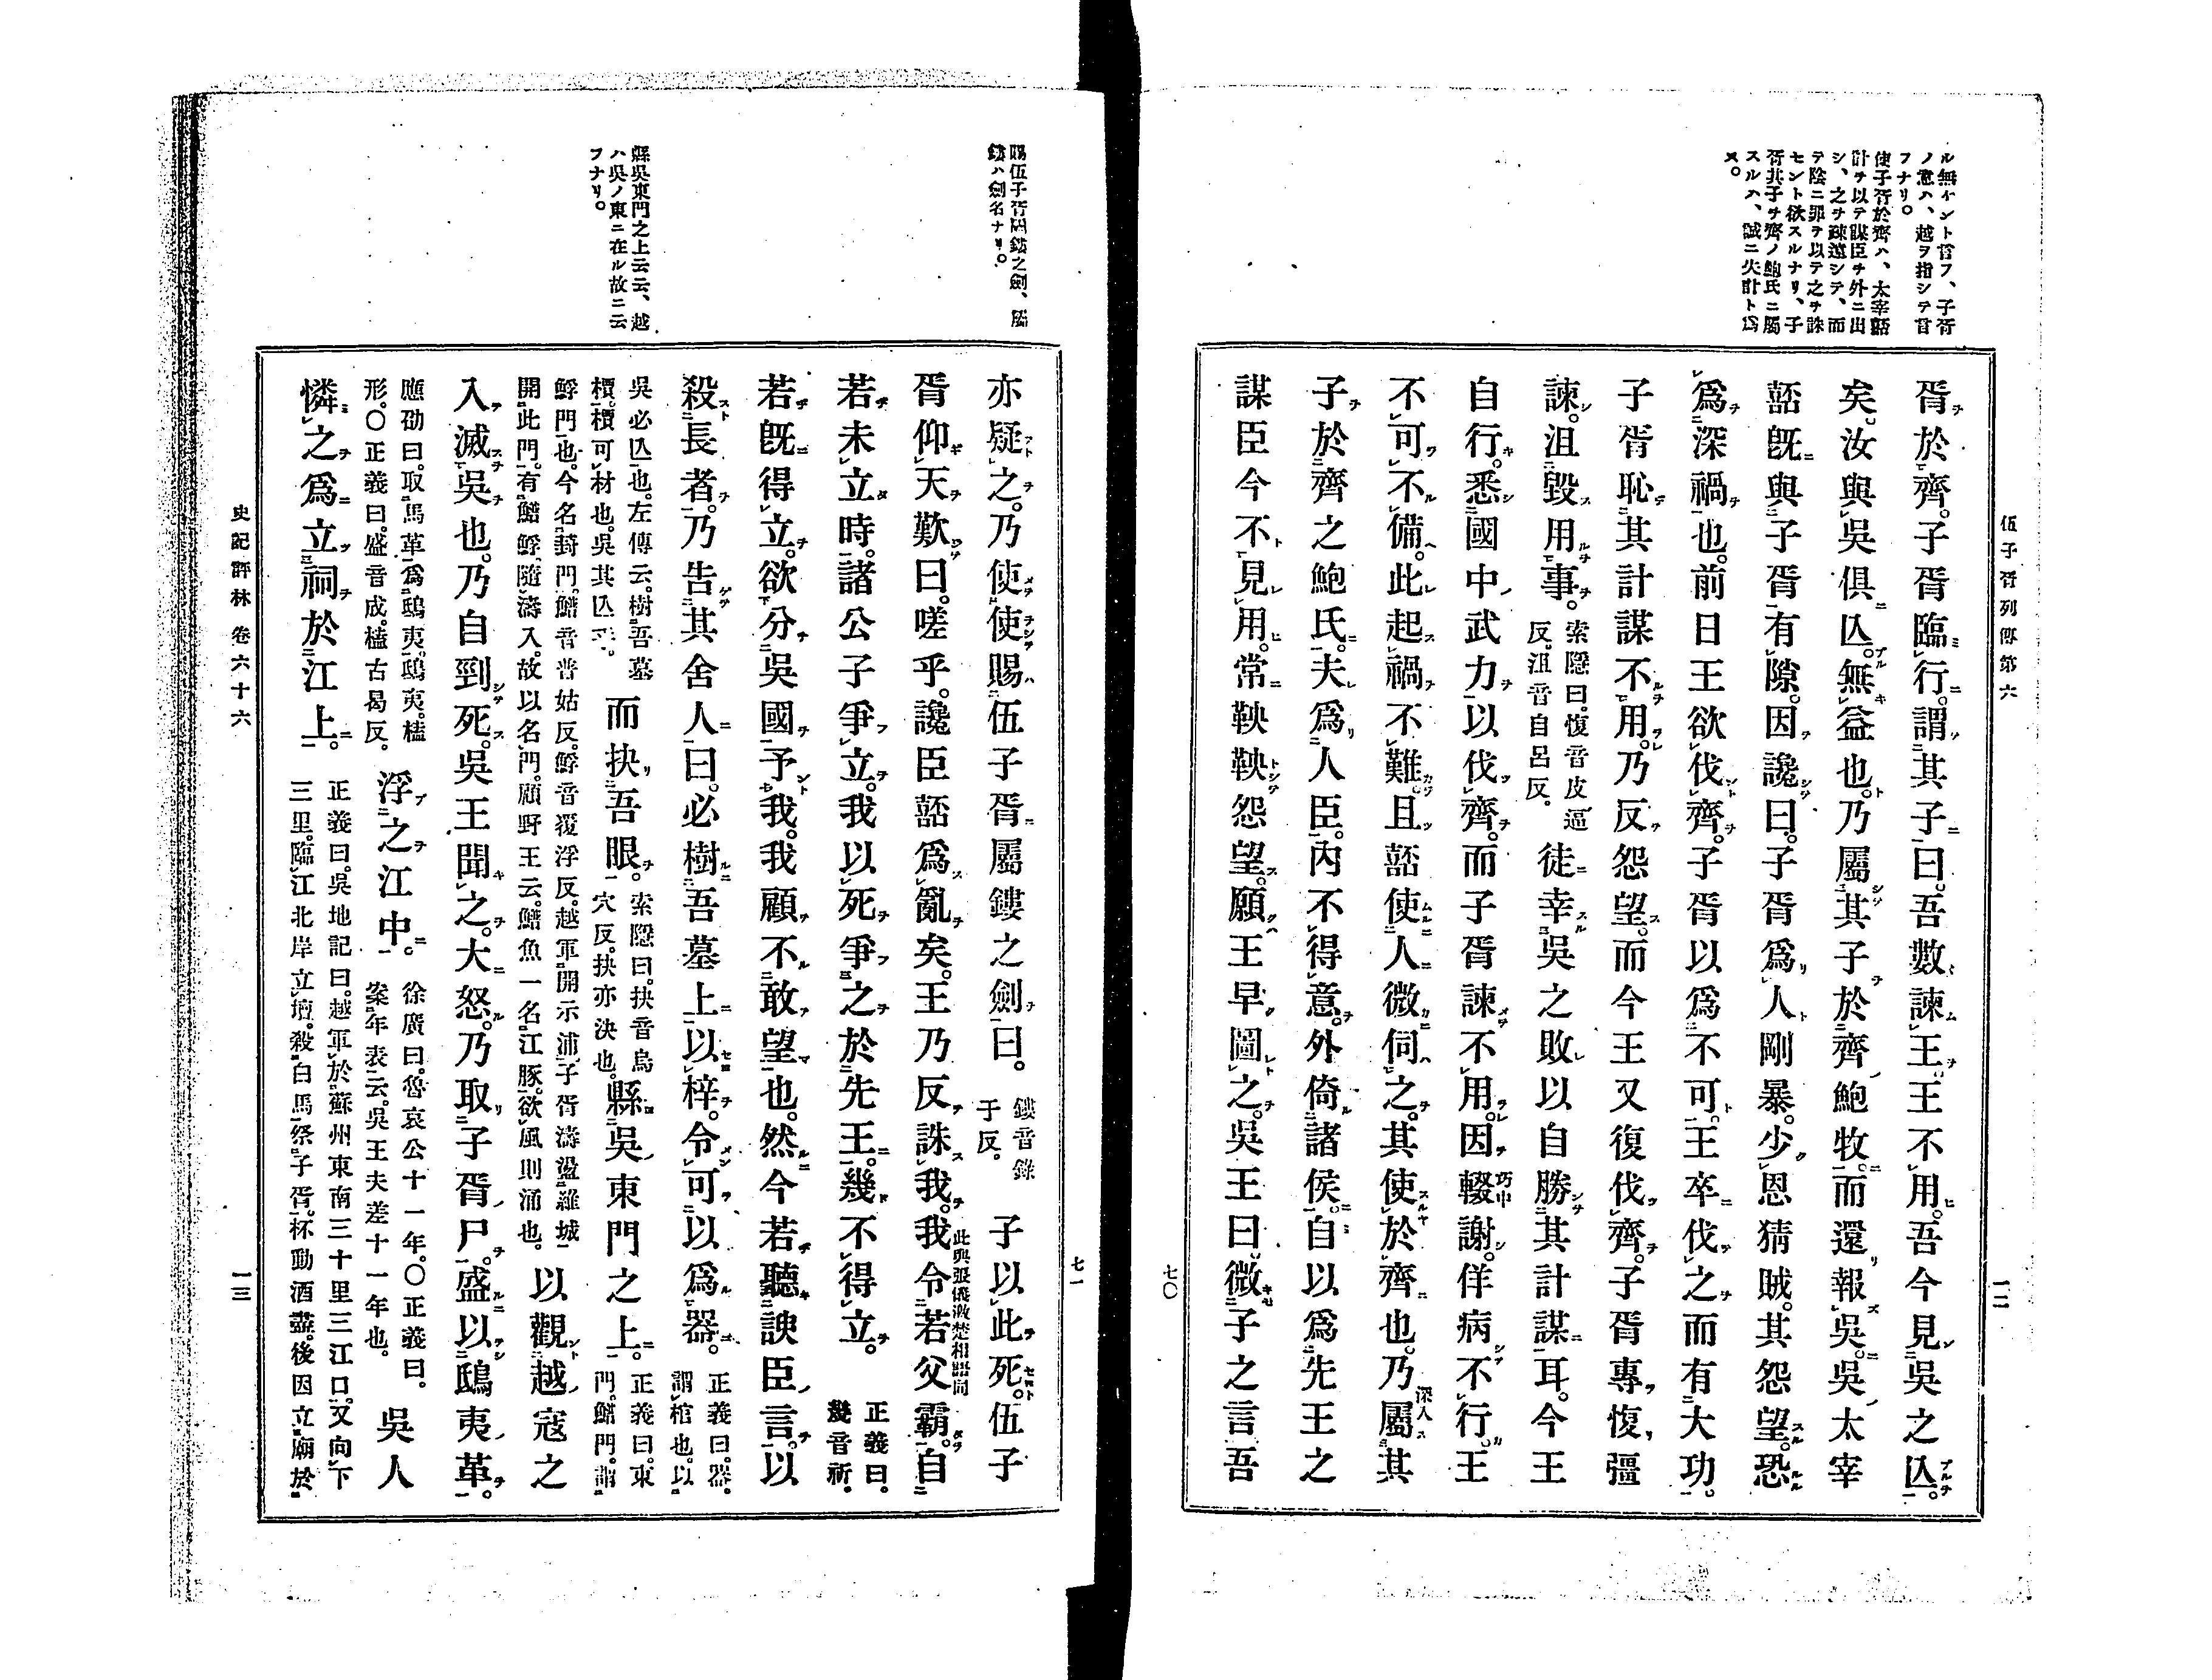 伍子胥列傳第六
一二
ル無ケント言フ、子胥
ノ意ハ、越ヲ指シテ言
フナリ。
使子胥於齊ハ、太宰嚭
計ヲ以テ謀臣ヲ外ニ出
シ、之ヲ疎遠シテ、而
テ陰ニ罪ヲ以テ之ヲ誅
セント欲スルナリ、子
胥其子ヲ齊ノ鮑氏ニ屬
スルハ、誠ニ失計ト爲
ス。
胥於齊。子胥臨行。謂其子曰。吾數諫王。王不用。吾今見吳之亾。
矣。汝與吳俱亾。無益也。乃屬其子於齊鮑牧。而還報吳。吳太宰
嚭旣與子胥有隙。因讒曰。子胥爲人剛暴。少恩猜賊。其怨望。恐
爲深禍也。前日王欲伐齊。子胥以爲不可。王卒伐之而有大功。
子胥恥其計謀不用。乃反怨望。而今王又復伐齊。子胥專愎彊
諫。沮毀用事。索隱曰。愎音皮逼反。沮音自呂反。徒幸吳之敗以自勝其計謀耳。今王
自行。悉國中武力以伐齊。而子胥諫不用。因輟謝。佯病不行。王
不可不備。此起禍不難。且嚭使人微伺之。其使於齊也。乃屬其
子於齊之鮑氏。夫爲人臣。內不得意。外倚諸侯。自以爲先王之
謀臣今不見用。常鞅鞅怨望。願王早圖之。吳王曰。微子之言吾
七〇
七一
賜伍子胥屬鏤之劍、屬
鏤ハ劍名ナリ。
縣吳東門之上云云、越
ハ吳ノ東ニ在ル故ニ云
フナリ。
亦疑之。乃使使賜伍子胥屬鏤之劍曰。鏤音錄于反。子以此死。伍子
胥仰天歎曰。嗟乎。讒臣嚭爲亂矣。王乃反誅我。我令若父霸。自
此與張儀激楚相語同
若未立時。諸公子爭立。我以死爭之於先王。幾不得立。正義曰。幾音祈。
若旣得立。欲分吳國予我。我顧不敢望也。然今若聽諛臣言。以
殺長者。乃告其舍人曰。必樹吾墓上以梓。令可以爲器。正義曰。器。謂棺也。以
吳必亾也。左傳云。樹吾墓檟。檟可材也。吳其亾乎。而抉吾眼。索隱曰。抉音烏穴反。抉亦決也。縣吳東門之上。正義曰。東門。鱛門。謂
鯙門也。今名葑門。鱛音普姑反。鯙音覆浮反。越軍開示浦。子胥濤盪羅城。
開此門。有鱛鯙隨濤入。故以名門。顧野王云。鱛魚一名江豚。欲風則涌也。以觀越寇之
入滅吳也。乃自剄死。吳王聞之。大怒。乃取子胥尸。盛以鴟夷革。
應劭曰。取馬革爲鴟夷。鴟夷。榼形。〇正義曰。盛音成。榼古曷反。浮之江中。徐廣曰。魯哀公十一年。〇正義曰。案年表云。吳王夫差十一年也。吳人
憐之爲立祠於江上。正義曰。吳地記曰。越軍於蘇州東南三十里三江口。又向下三里。臨江北岸立壇。殺白馬祭子胥。杯動酒盡。後因立廟於
史記評林 卷六十六
一三